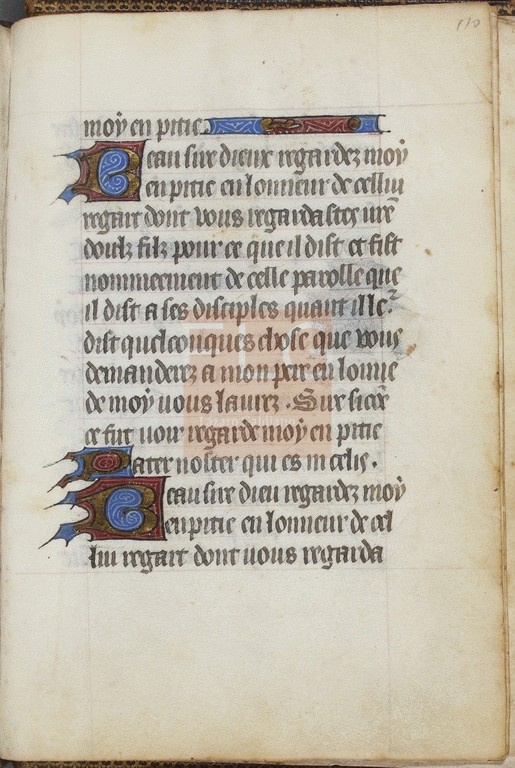 110
moÿ en pitie.
Beau sire dieux regardez moÿ
en pitie en lonneur de cellui
regart dont vous regardastes vr̄e
doulz filz pour ce que il dist et fist
nommeement de celle parolle que
il dist a ses disciples quant il le²
dist quelconques chose que vous
demanderez a mon pere en lonne
de moÿ vous laurez. Sire sicōe
ce fut voir regarde moÿ en pitie
Pater noster qui es in celis.
Beau sire dieu regardez moÿ
en pitie en lonneur de cel
lui regart dont vous regarda